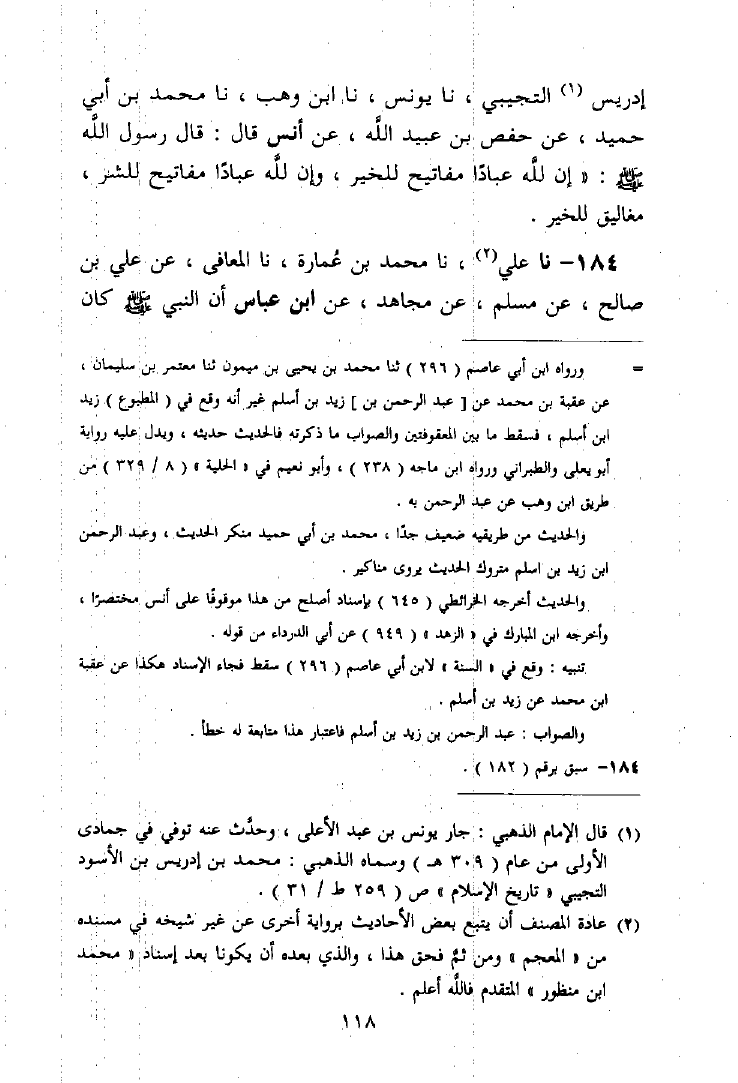 إدريس (١) التجيبي ، نا يونس ، نا ابن وهب ، نا محمد بن أبي
حميد ، عن حفص بن عبيد الله ، عن أنس قال : قال رسول الله
ﷺ : « إن لله عبادًا مفاتيح للخير ، وإن لله عبادًا مفاتيح للشر ،
مغاليق للخير .
١٨٤- نا علي(٢) ، نا محمد بن عُمارة ، نا المعافى ، عن علي بن
صالح ، عن مسلم ، عن مجاهد ، عن ابن عباس أن النبي ﷺ كان
= ورواه ابن أبي عاصم ( ٢٩٦ ) ثنا محمد بن يحيى بن ميمون ثنا معتمر بن سليمان ،
عن عقبة بن محمد عن [ عبد الرحمن بن ] زيد بن أسلم غير أنه وقع في ( المطبوع ) زيد
ابن أسلم ، فسقط ما بين المعقوفتين والصواب ما ذكرته فالحديث حديثه ، ويدل عليه رواية
أبو يعلى والطبراني ورواه ابن ماجه ( ٢٣٨ ) ، وأبو نعيم في « الحلية » ( ٨ / ٣٢٩ ) من
طريق ابن وهب عن عبد الرحمن به .
والحديث من طريقيه ضعيف جدًا ، محمد بن أبي حميد منكر الحديث ، وعبد الرحمن
ابن زيد بن اسلم متروك الحديث يروى مناكير .
والحديث أخرجه الخرائطي ( ٦٤٥ ) بإسناد أصلح من هذا موقوفًا على أنس مختصرًا ،
وأخرجه ابن المبارك في « الزهد » ( ٩٤٩ ) عن أبي الدرداء من قوله .
تنبيه : وقع في « السنة » لابن أبي عاصم ( ٢٩٦ ) سقط فجاء الإسناد هكذا عن عقبة
ابن محمد عن زيد بن أسلم .
والصواب : عبد الرحمن بن زيد بن أسلم فاعتبار هذا متابعة له خطأ .
١٨٤- سبق برقم ( ١٨٢ ) .
(١) قال الإمام الذهبي : جار يونس بن عبد الأعلى ، وحدَّث عنه توفي في جمادى
الأولى من عام ( ٣٠٩ هـ ) وسماه الذهبي : محمد بن إدريس بن الأسود
التجيبي « تاريخ الإسلام » ص ( ٢٥٩ ط / ٣١ ) .
(٢) عادة المصنف أن يتبع بعض الأحاديث برواية أخرى عن غير شيخه في مسنده
من « المعجم » ومن ثمَّ فحق هذا ، والذي بعده أن يكونا بعد إسناد « محمد
ابن منظور » المتقدم فالله أعلم .
١١٨